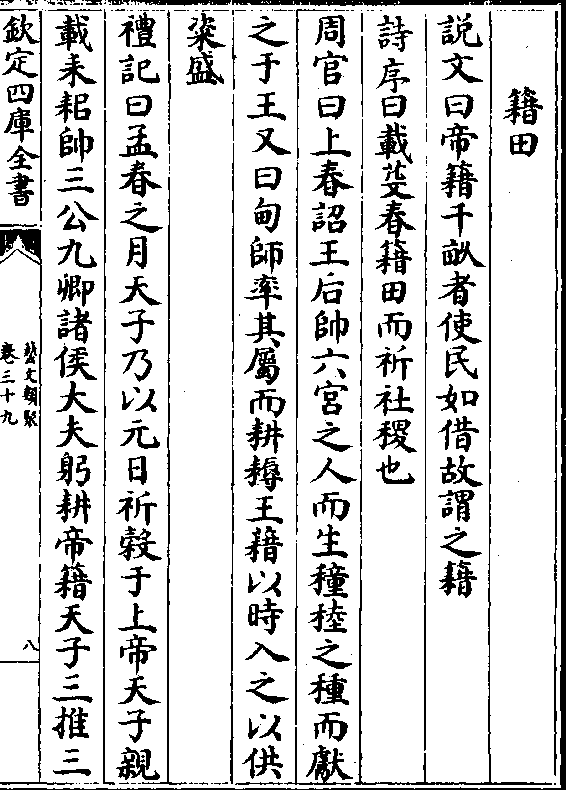 籍田
説文曰帝籍千畝者使民如借故謂之籍
詩序曰載芟春籍田而祈社稷也
周官曰上春詔王后帥六宮之人而生穜稑之種而獻
之于王又曰甸師率其屬而耕耨王藉以時入之以供
粢盛
禮記曰孟春之月天子乃以元日祈穀于上帝天子親
載耒耜帥三公九卿諸侯大夫躬耕帝籍天子三推三
欽定四庫全書
藝文類聚
卷三十九
八